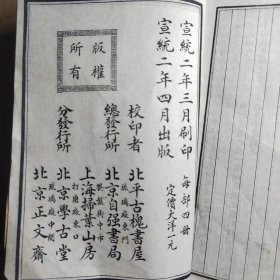 宣統二年三月刷印
宣統二年四月出版
每部四冊
定價大洋一元
版權所有
校印者
北平古槐書屋
總發行所
琉璃廠東門
北京自強書局
分發行所
上海掃葉山房
打磨廠東口
北京學古堂
琉璃廠中間
北京正文齋